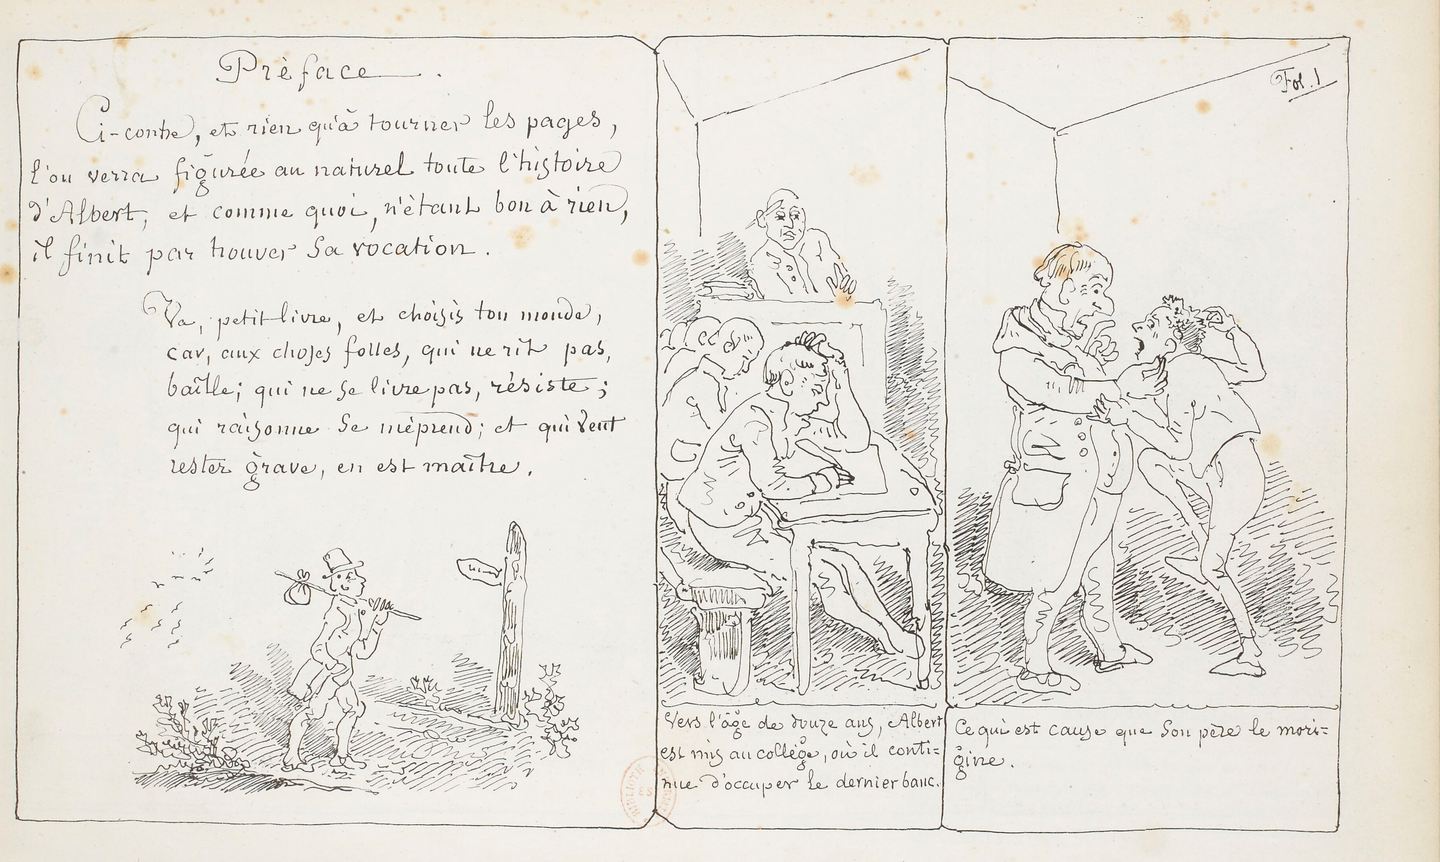 Préface.
Ci-contre, et rien qu'à tourner les pages,
l'on verra figurée au naturel toute l'histoire
d'Albert, et comme quoi, n'étant bon à rien,
il finit par trouver sa vocation.
Va, petit livre, et choisis ton monde,
car, aux choses folles, qui ne rit pas,
baîlle; qui ne se livre pas, résiste;
qui raisonne se méprend; et qui veut
rester grave, en est maître.
Fol. 1
Vers l'âge de douze ans, Albert
est mis au collège, où il conti=
nue d'occuper le dernier banc.
Ce qui est cause que son père le mori=
gine.